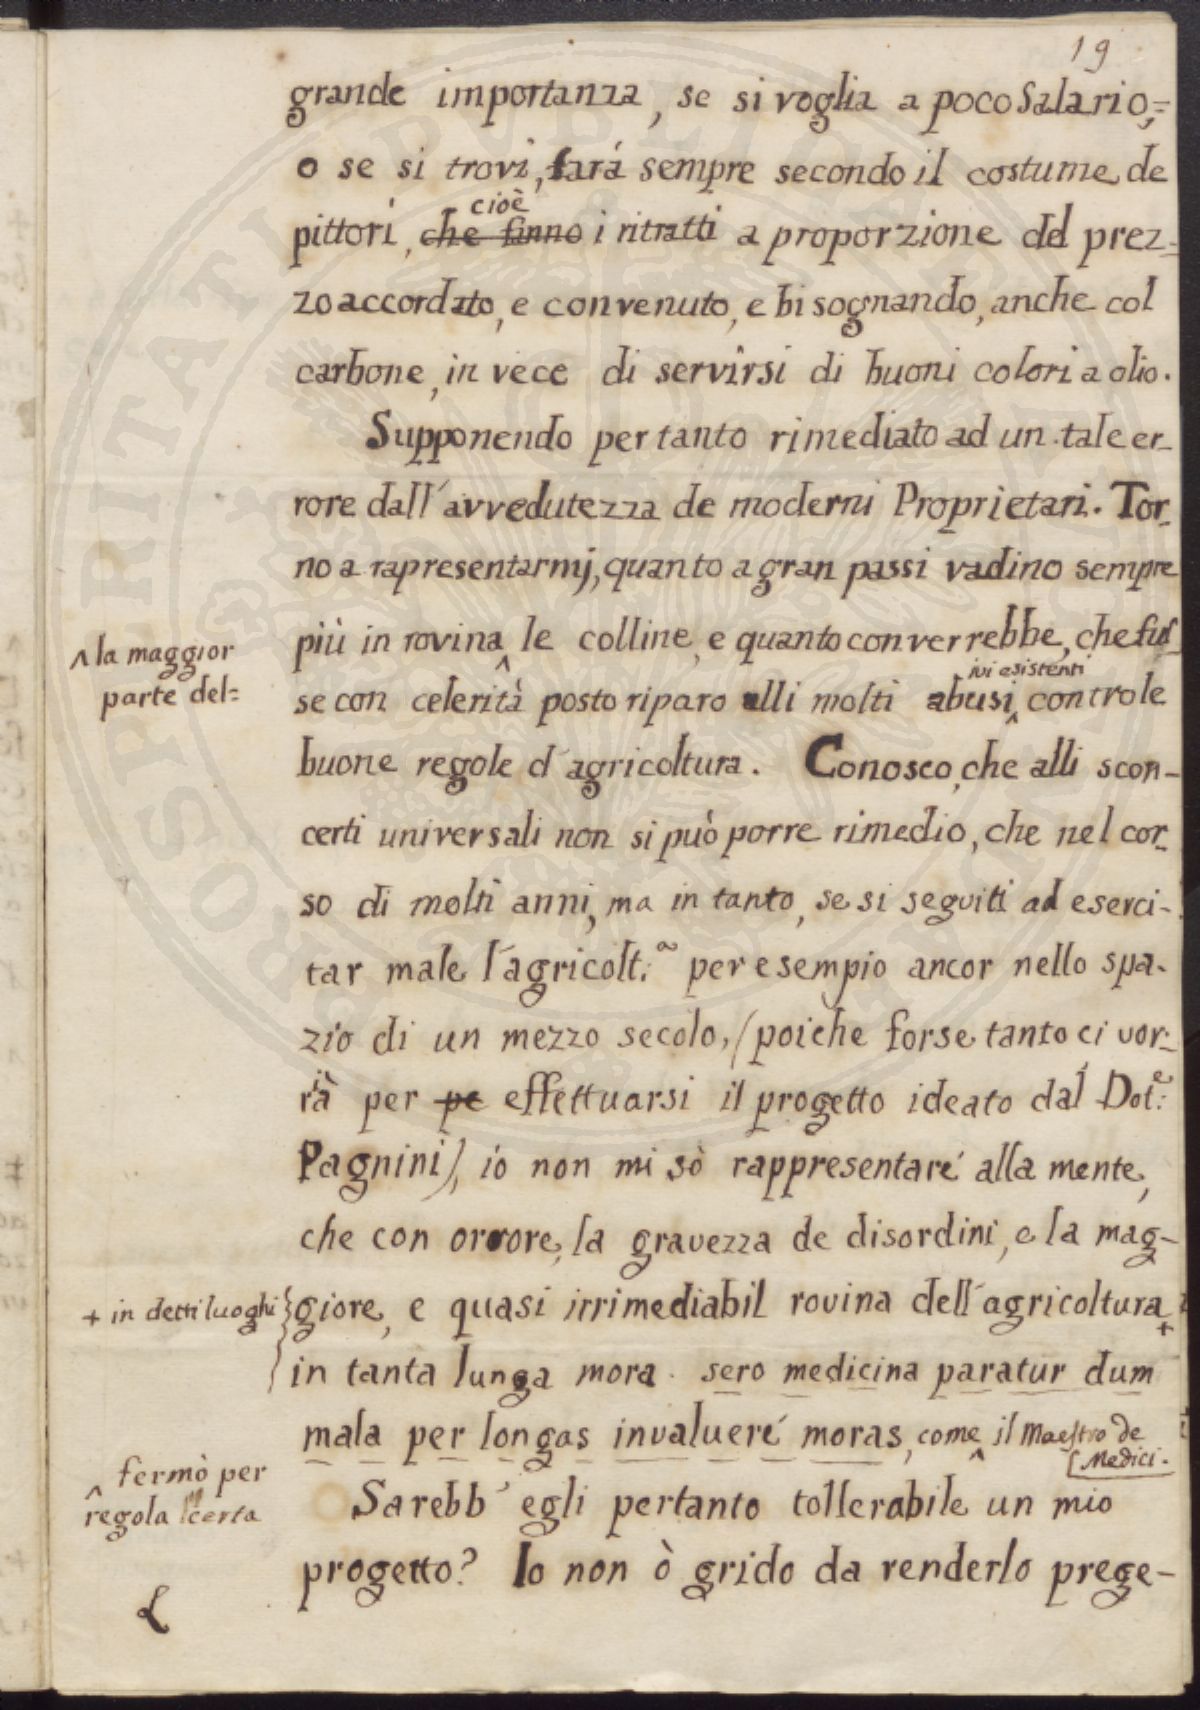 19
grande importanza, se si voglia a poco Salario,=
o se si trovi, fará sempre secondo il costume de
cioè
pittori, che fanno i ritratti a proporzione del prez-
zo accordato, e convenuto, e bisognando, anche col
carbone, in vece di servirsi di buoni colori a olio.
Supponendo per tanto rimediato ad un tale er-
rore dall'avvedutezza de moderni Proprietari. Tor-
no a rapresentarmj, quanto a gran passi vadino sempre
più in rovina ^ le colline, e quanto converrebbe, che fus-
^ la maggior
parte del=
ivi esistenti
se con celerità posto riparo alli molti abusi ^ contro le
buone regole d'agricoltura. Conosco, che alli scon-
certi universali non si può porre rimedio, che nel cor-
so di molti anni, ma in tanto, se si seguiti ad eserci-
tar male l'agricolt.a per esempio ancor nello spa-
zio di un mezzo secolo, (poiche forse tanto ci vor-
rà per pe effettuarsi il progetto ideato dal Dot.e
Pagnini), io non mi sò rappresentare alla mente,
che con orrore, la gravezza de disordini, e la mag-
+ in detti luoghi
giore, e quasi irrimediabil rovina dell'agricoltura +
in tanta lunga mora. sero medicina paratur dum
mala per longas invaluere moras, come ^ il Maestro de
Medici.
^ fermò per
regola certa
Sarebb'egli pertanto tollerabile un mio
progetto? Io non ò grido da renderlo prege-